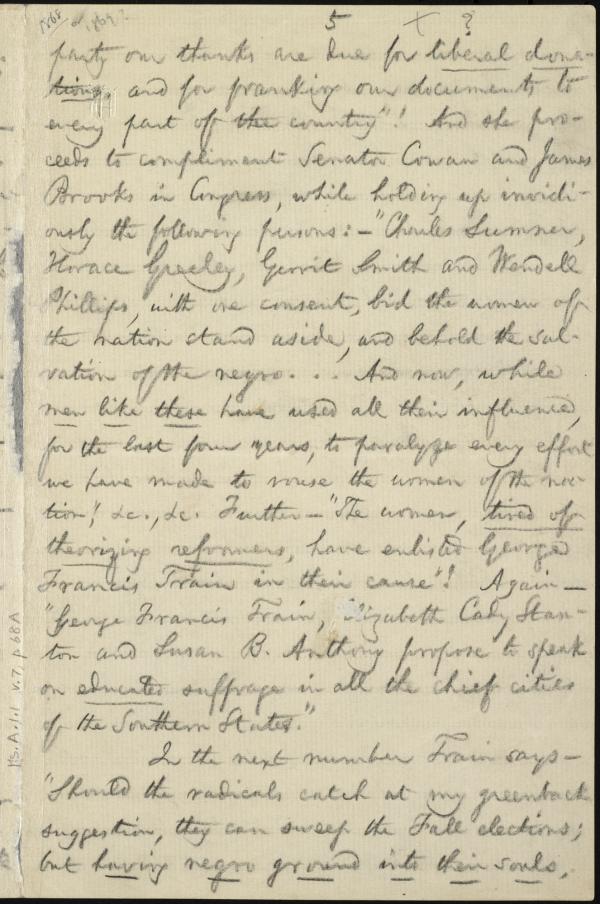 1868 or 1869?
5 x ?
party our thanks are due for liberal dona-
tions, and for franking our documents to
every part off the country"! And she pro-
ceeds to compliment Senator Cowan and James
Brooks in Congress, while holding up invidi-
ously the following persons:—"Charles Sumner,
Horace Greeley, Gerrit Smith and Wendell
Phillips, with one consent, bid the women off
the nation stand aside, and behold the sal-
vation off the negro. . . And now, while
men like these have used all their influence,
for the last four years, to paralyze every effort
we have made to rouse the women off the na-
tion", &c., &c. Further—"The women, tired off
theorizing reformers, have enlisted George
Francis Train in their cause"! Again—
"George Francis Train, Elizabeth Cady Stan-
ton and Susan B. Anthony propose to speak
on educated suffrage in all the chief cities
of the Southern States."
In the next number Train says—
"Should the radicals catch at my greenback
suggestion, they can sweep the Fall elections;
but having negro ground into their souls,
Ms.A.1.1 v.7, p 68A